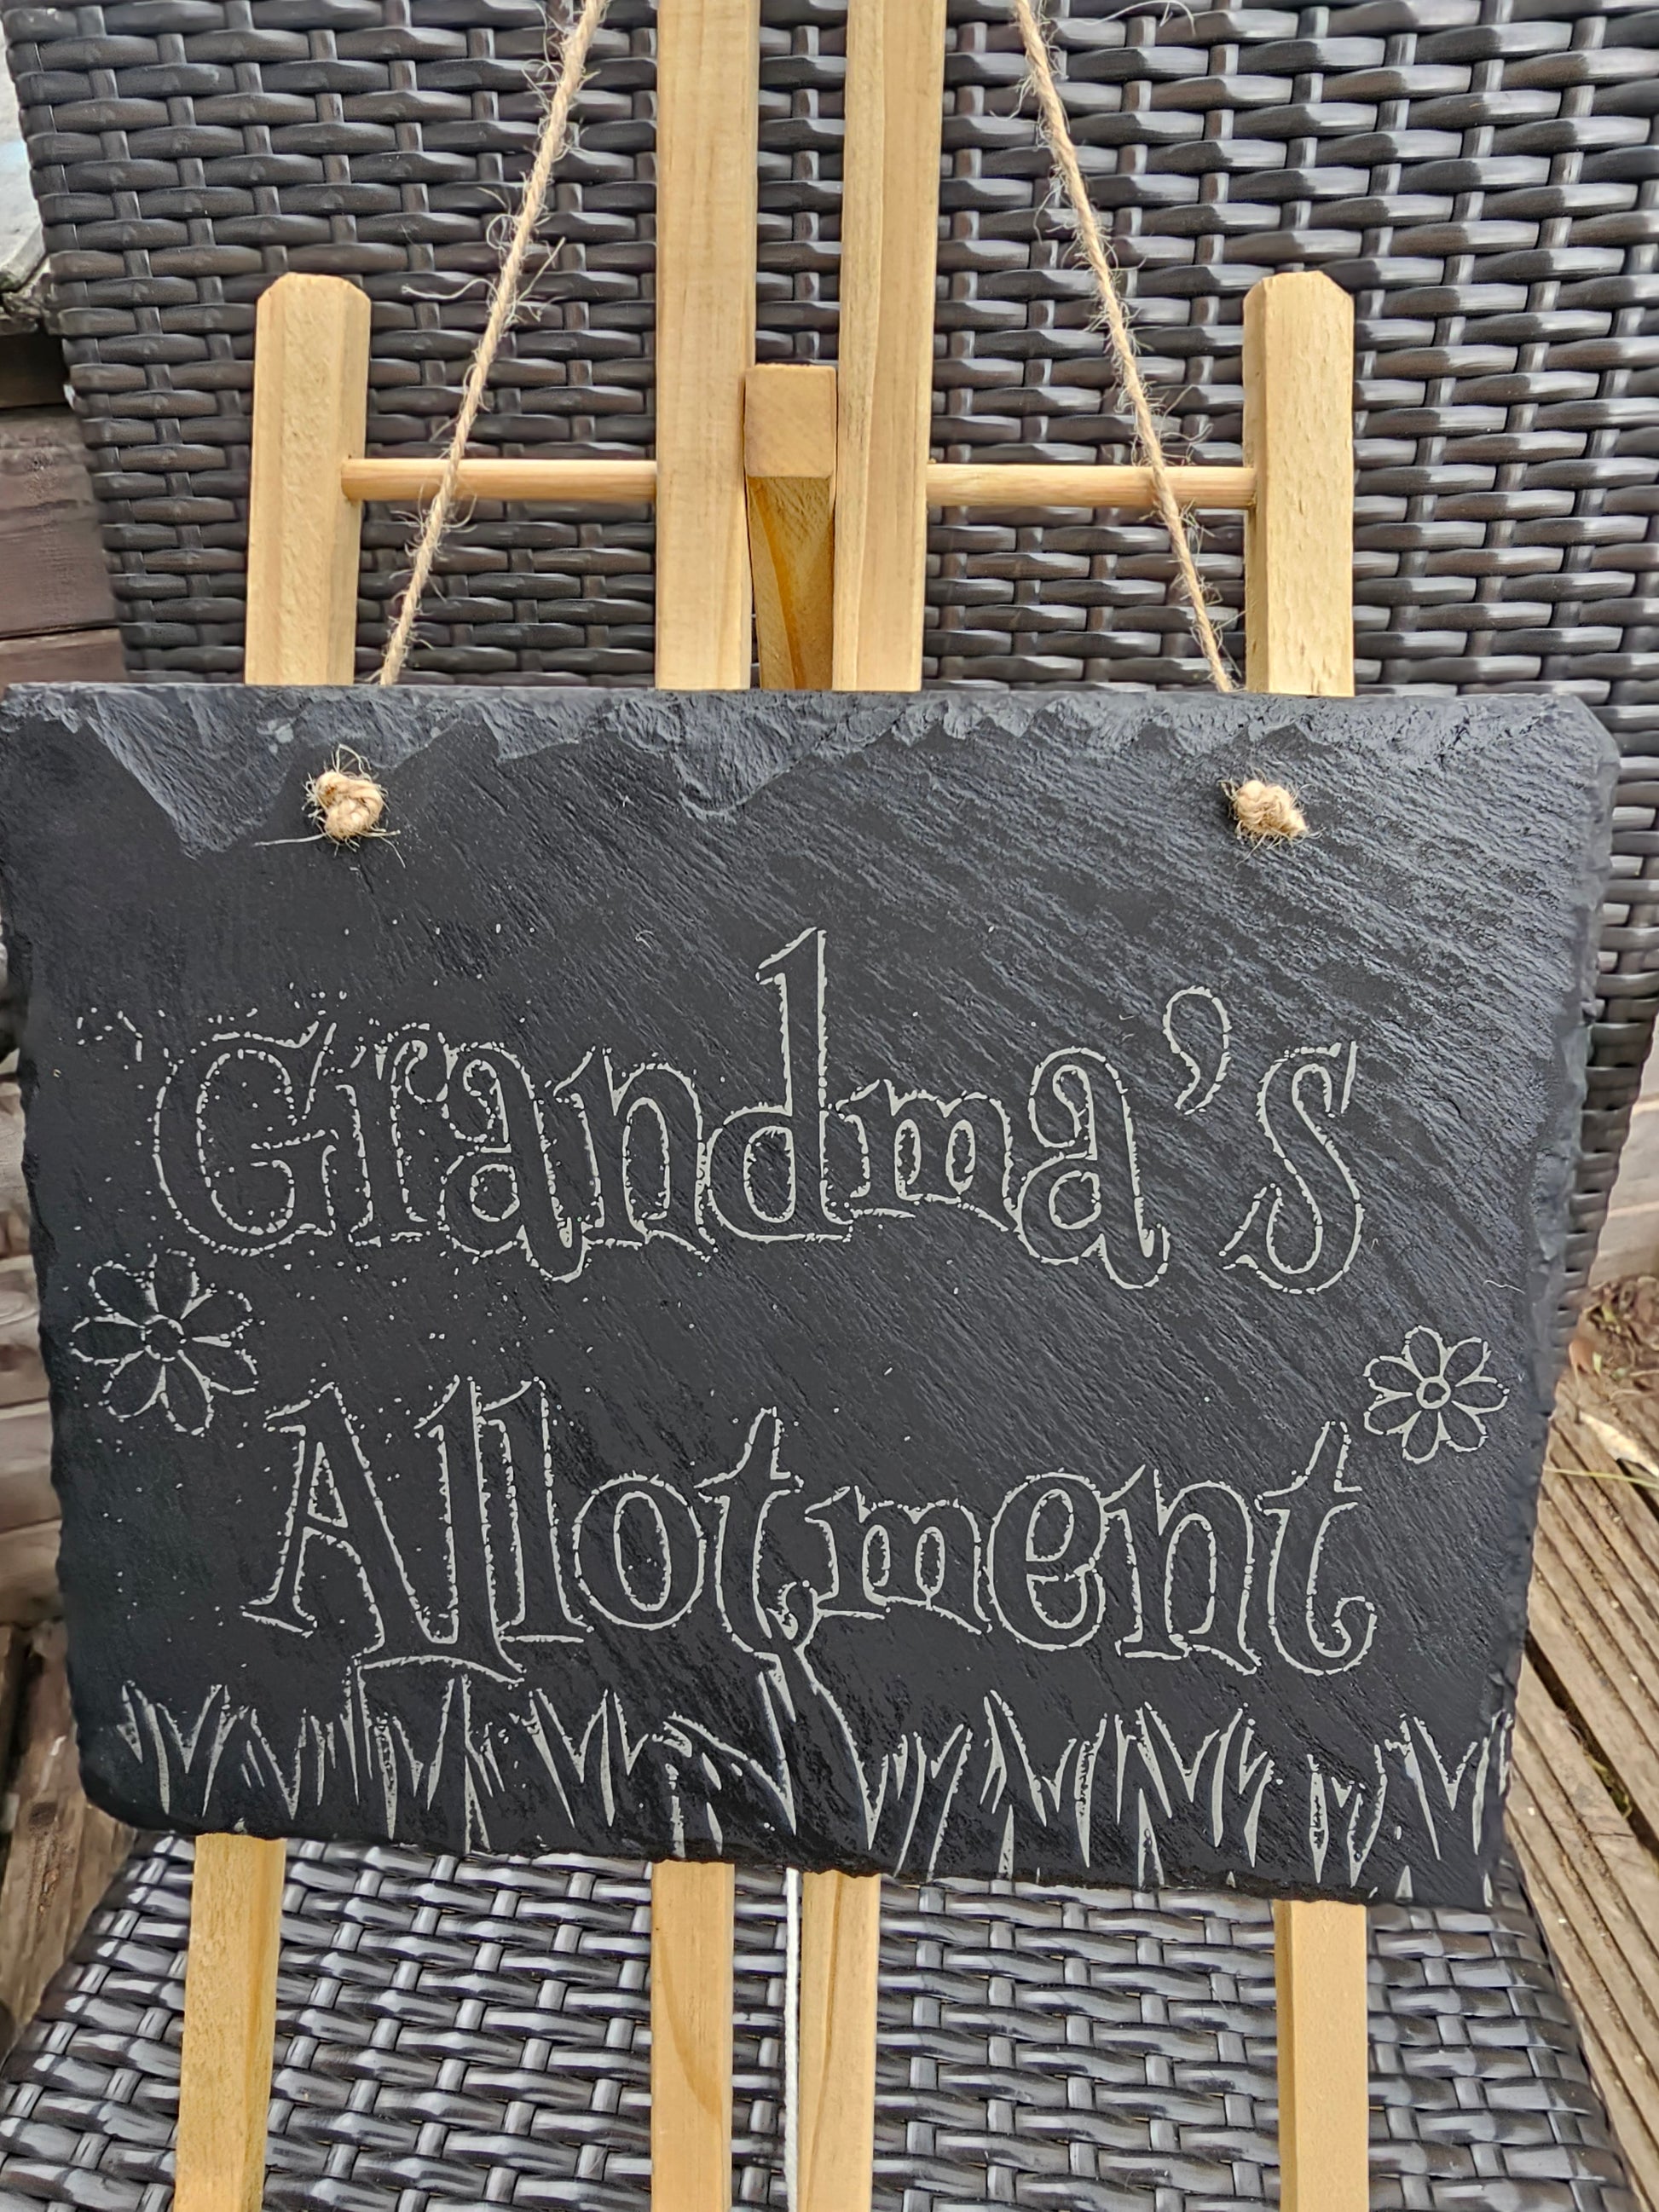 Grandma's
Allotment